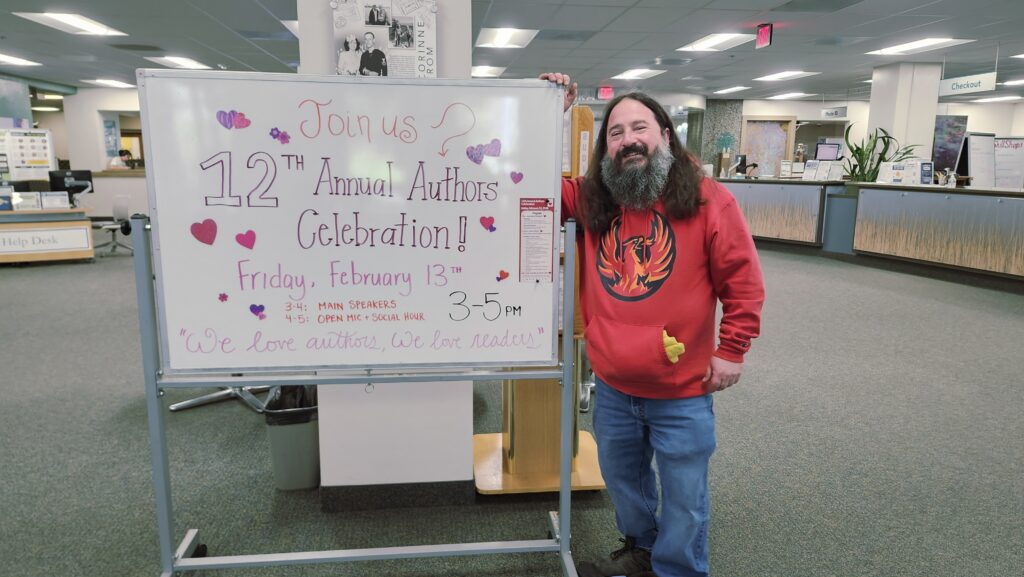 CORINNE
FROM
Checkout
Join us
12TH Annual Authors
Celebration!
Friday, February 13TH
3-4: MAIN SPEAKERS
4-5: OPEN MIC + SOCIAL HOUR
3-5 PM
"We love authors, We love readers"
Help Desk